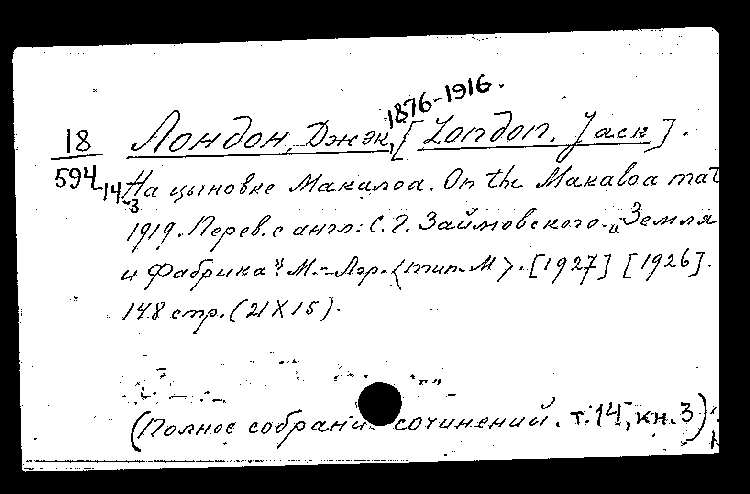 1876-1916.
18 Лондон, Джэк, [London, Jack].
594 14-3 На цыновке Макалоа. On the Makaloa mat
1919. Перев. с англ: С. Г. Займовского. „Земля
и Фабрика". М.-Лгр. <тип. М>. [1927] [1926].
148 стр. (21X15).
(Полное собрани сочинений. т. 14, кн. 3)